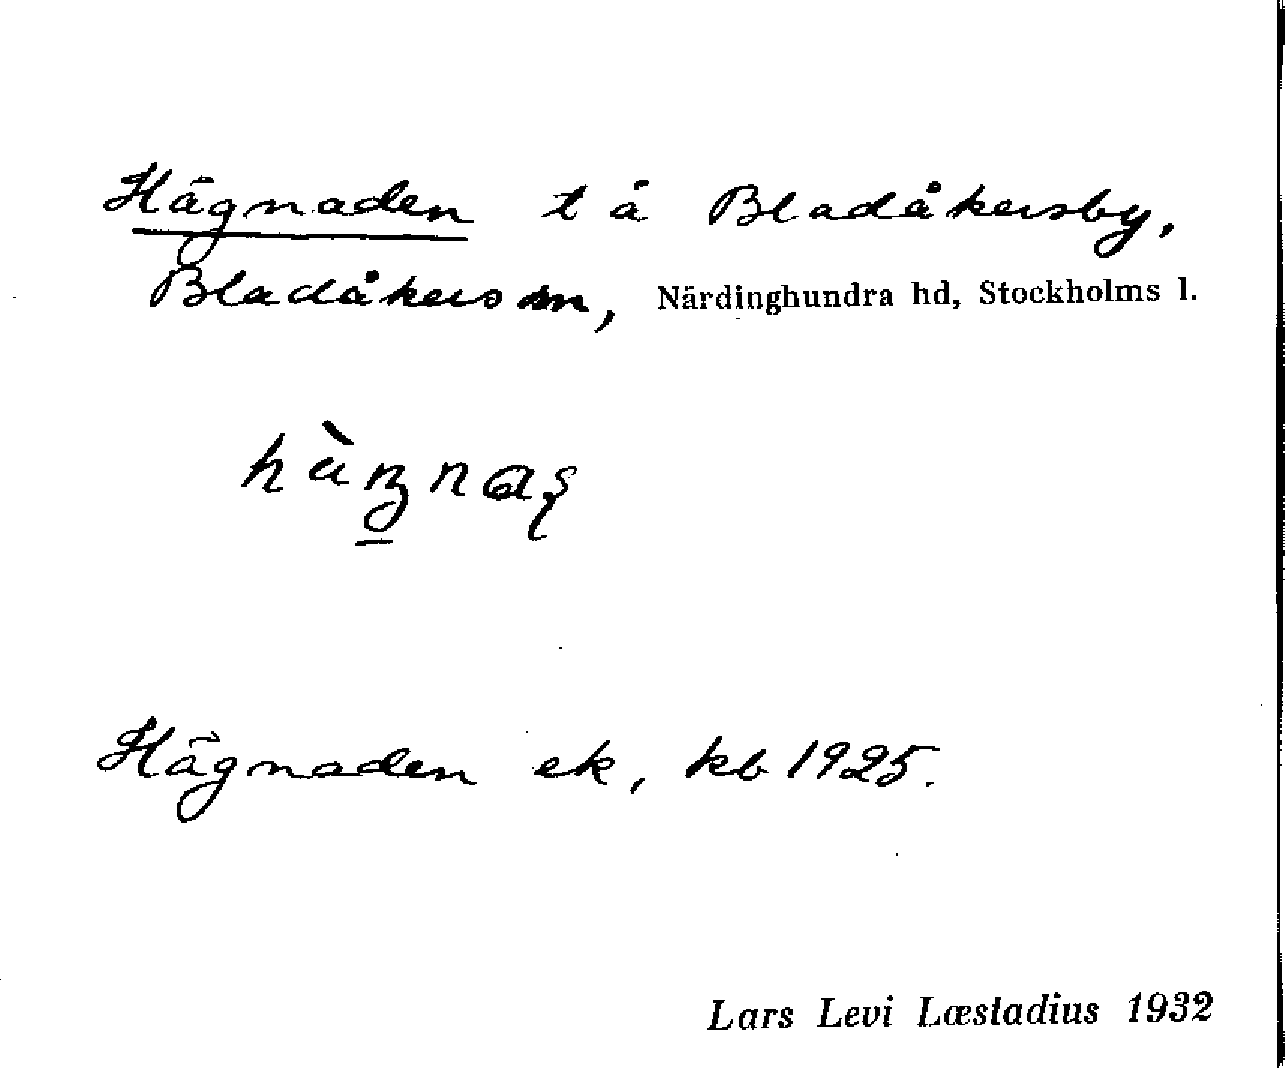 Hägnaden t å Bladåkersby,
Bladåkers sn, Närdinghundra hd, Stockholms l.
Hägnaden ek, kb 1925.
Lars Levi Læstadius 1932